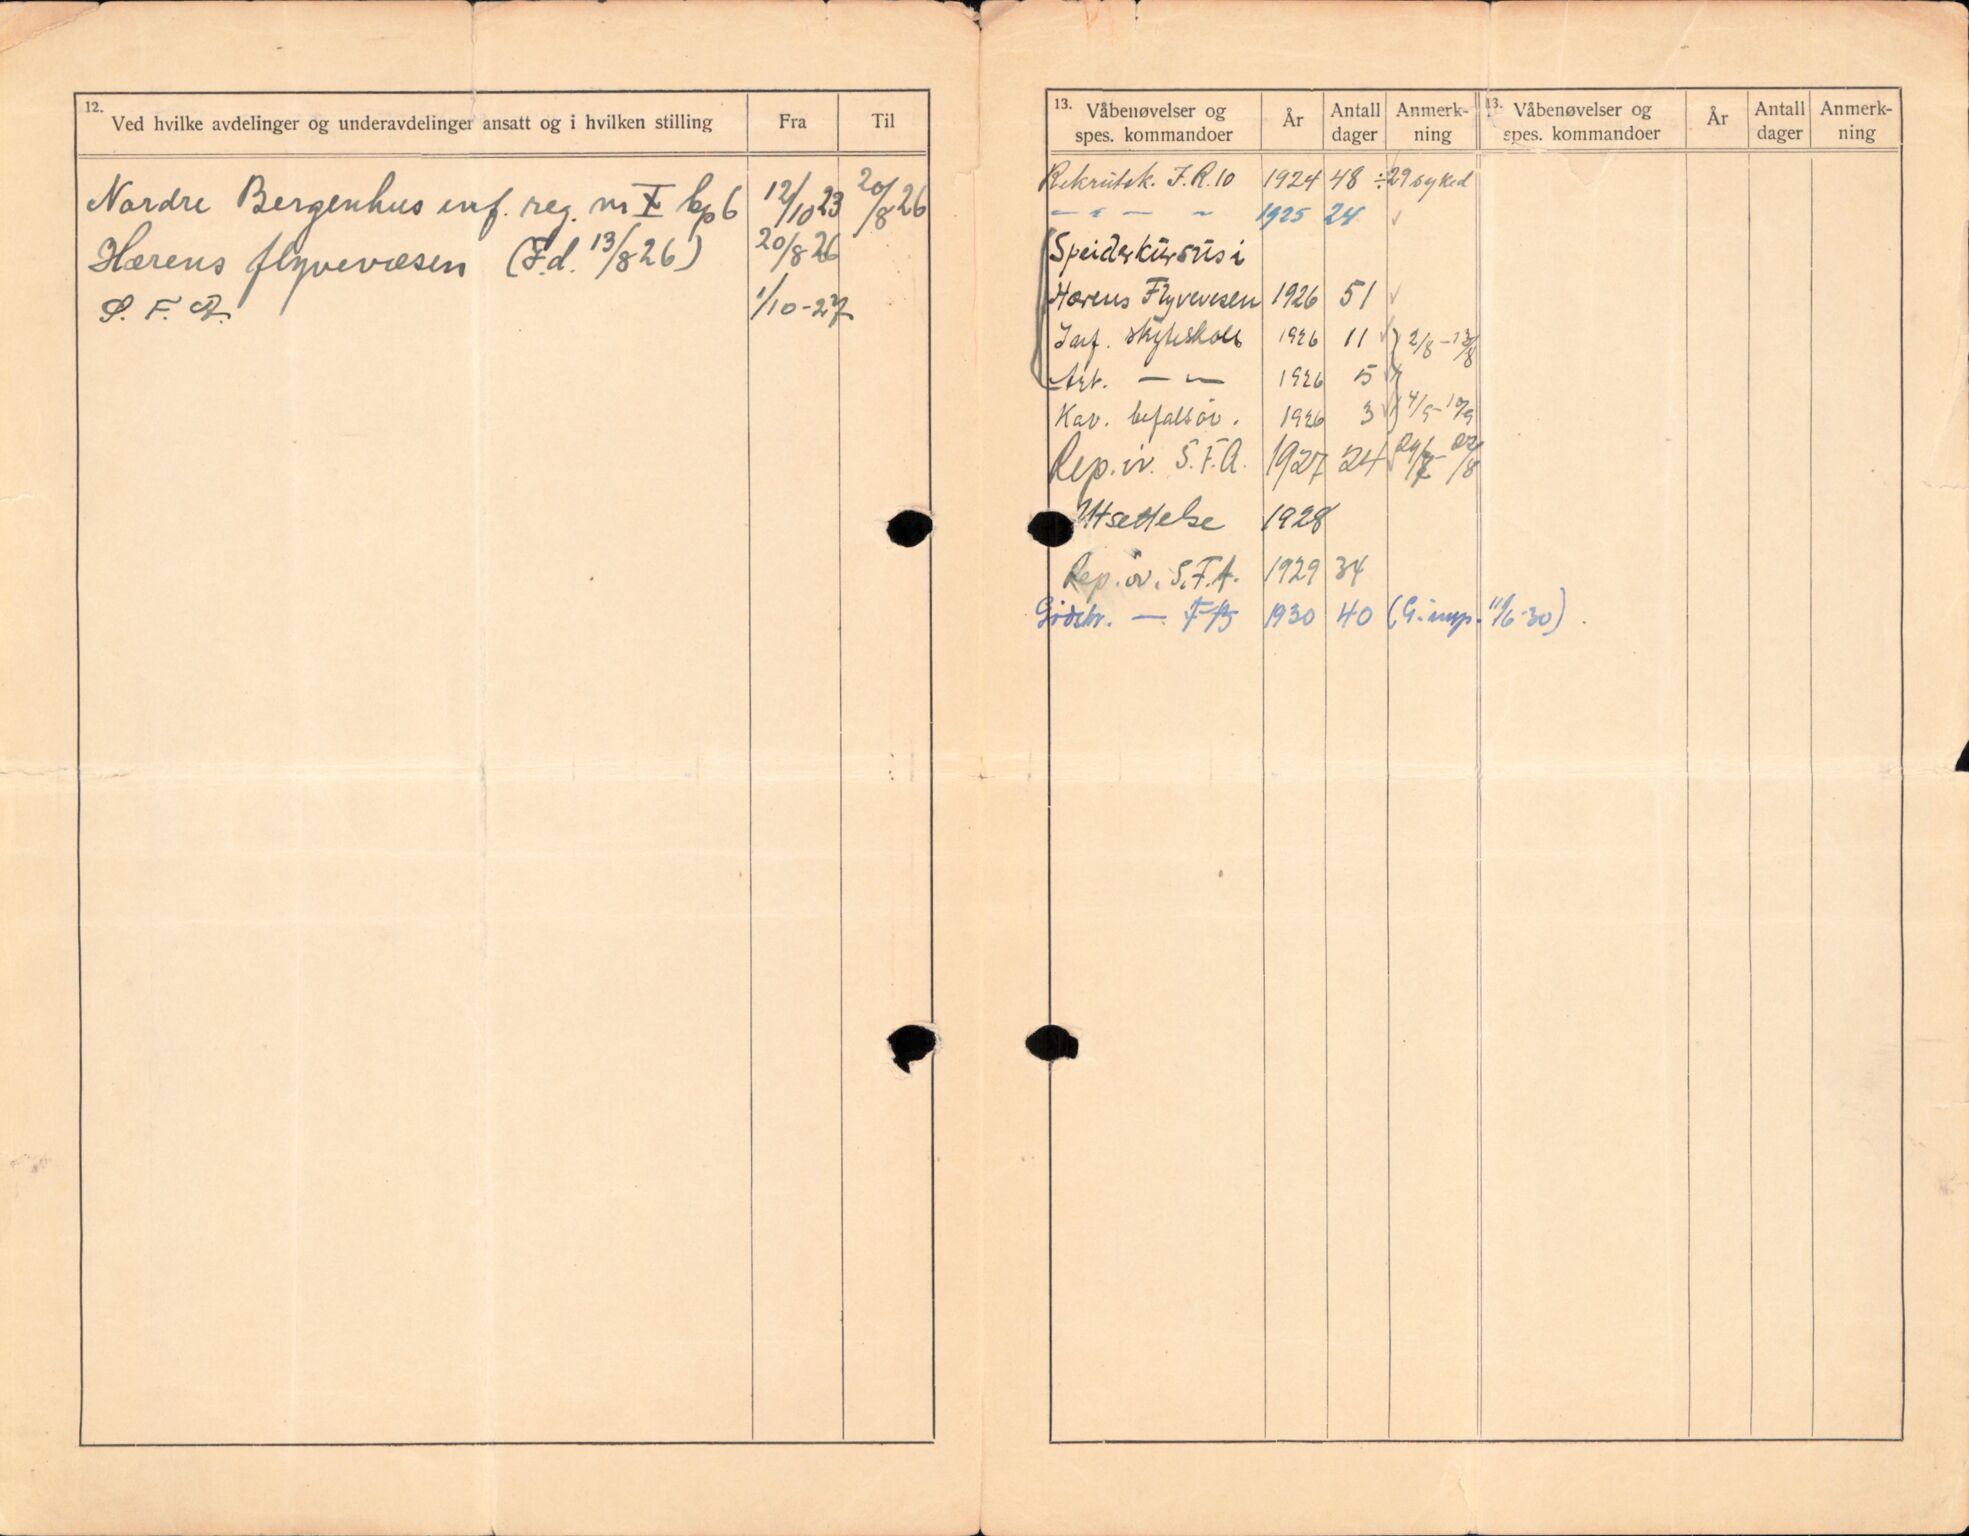 12.
Ved hvilke avdelinger og underavdelinger ansatt og i hvilken stilling Fra Til
Nordre Bergenhus inf. reg. nr X kp 6 12/10 23 20/8 26
Hærens flyvevæsen (F.d. 13/8 26) 20/8 26
S. F. A. 1/10-27
13. Våbenøvelser og spes. kommandoer År Antall dager Anmerkning
13. Våbenøvelser og spes. kommandoer År Antall dager Anmerkning
Rekrutsk. I.R. 10 1924 48 ÷29 syked
— " — " 1925 24 ✓
Speiderkursus i
Hærens Flyvevesen 1926 51 ✓
Inf. skyteskole 1926 11 ✓ } 2/8 – 13/8
Art. — " — 1926 5 ✓
Kav. befalsøv. 1926 3 ✓
Rep. øv. S.F.A. 1927 24 ✓
Utsettelse 1928
Rep. øv. S.F.A. 1929 34
1930 40 (G. insp. 11/6-30)